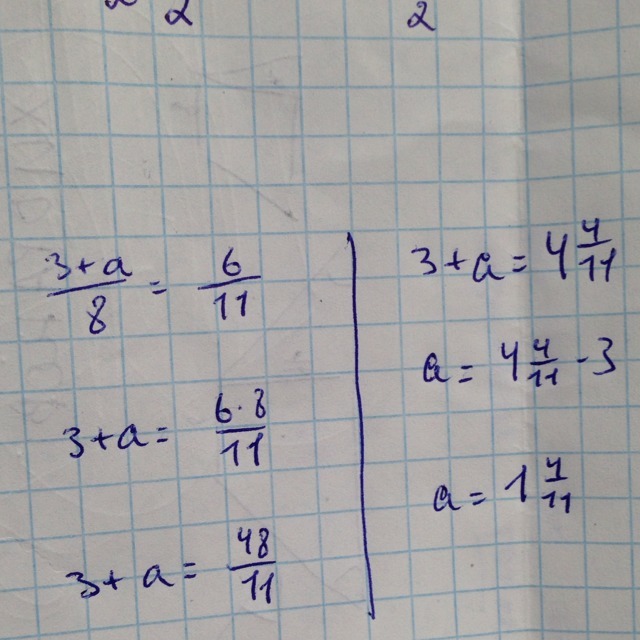 2 2
(3+a)/8 = 6/11
3+a = (6·8)/11
3+a = 48/11
3+a = 4 4/11
a = 4 4/11 - 3
a = 1 4/11